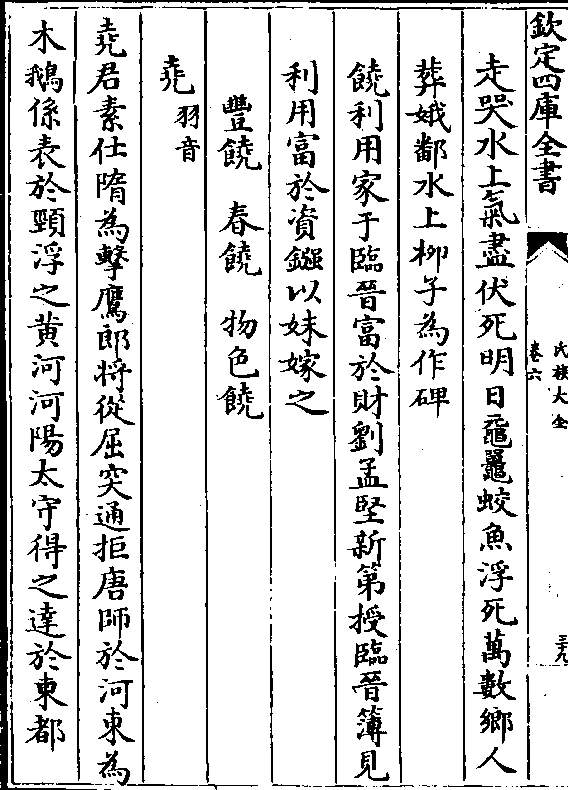 欽定四庫全書
氏族大全
卷六
三九
走哭水上氣盡伏死明日黿鼉蛟魚浮死萬數鄉人
葬娥鄱水上柳子為作碑
饒利用家于臨晉富於財劉孟堅新第授臨晉簿見
利用富於資鏹以妹嫁之
豐饒　春饒　物色饒
堯羽音
堯君素仕隋為擊鷹郎將從屈突通拒唐師於河東為
木鵝係表於頸浮之黄河河陽太守得之達於東都